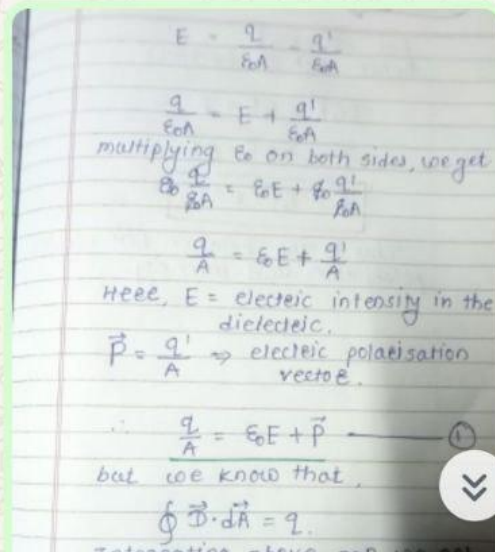 E = q/ε₀A - q'/ε₀A
q/ε₀A = E + q'/ε₀A
multiplying ε₀ on both sides, we get
ε₀ q/ε₀A = ε₀E + ε₀ q'/ε₀A
q/A = ε₀E + q'/A
Here, E = electric intensity in the
dielectric.
P⃗ = q'/A ⇒ electric polarisation
vector.
∴ q/A = ε₀E + P⃗ — ①
but we know that,
∮ D⃗·dA⃗ = q.